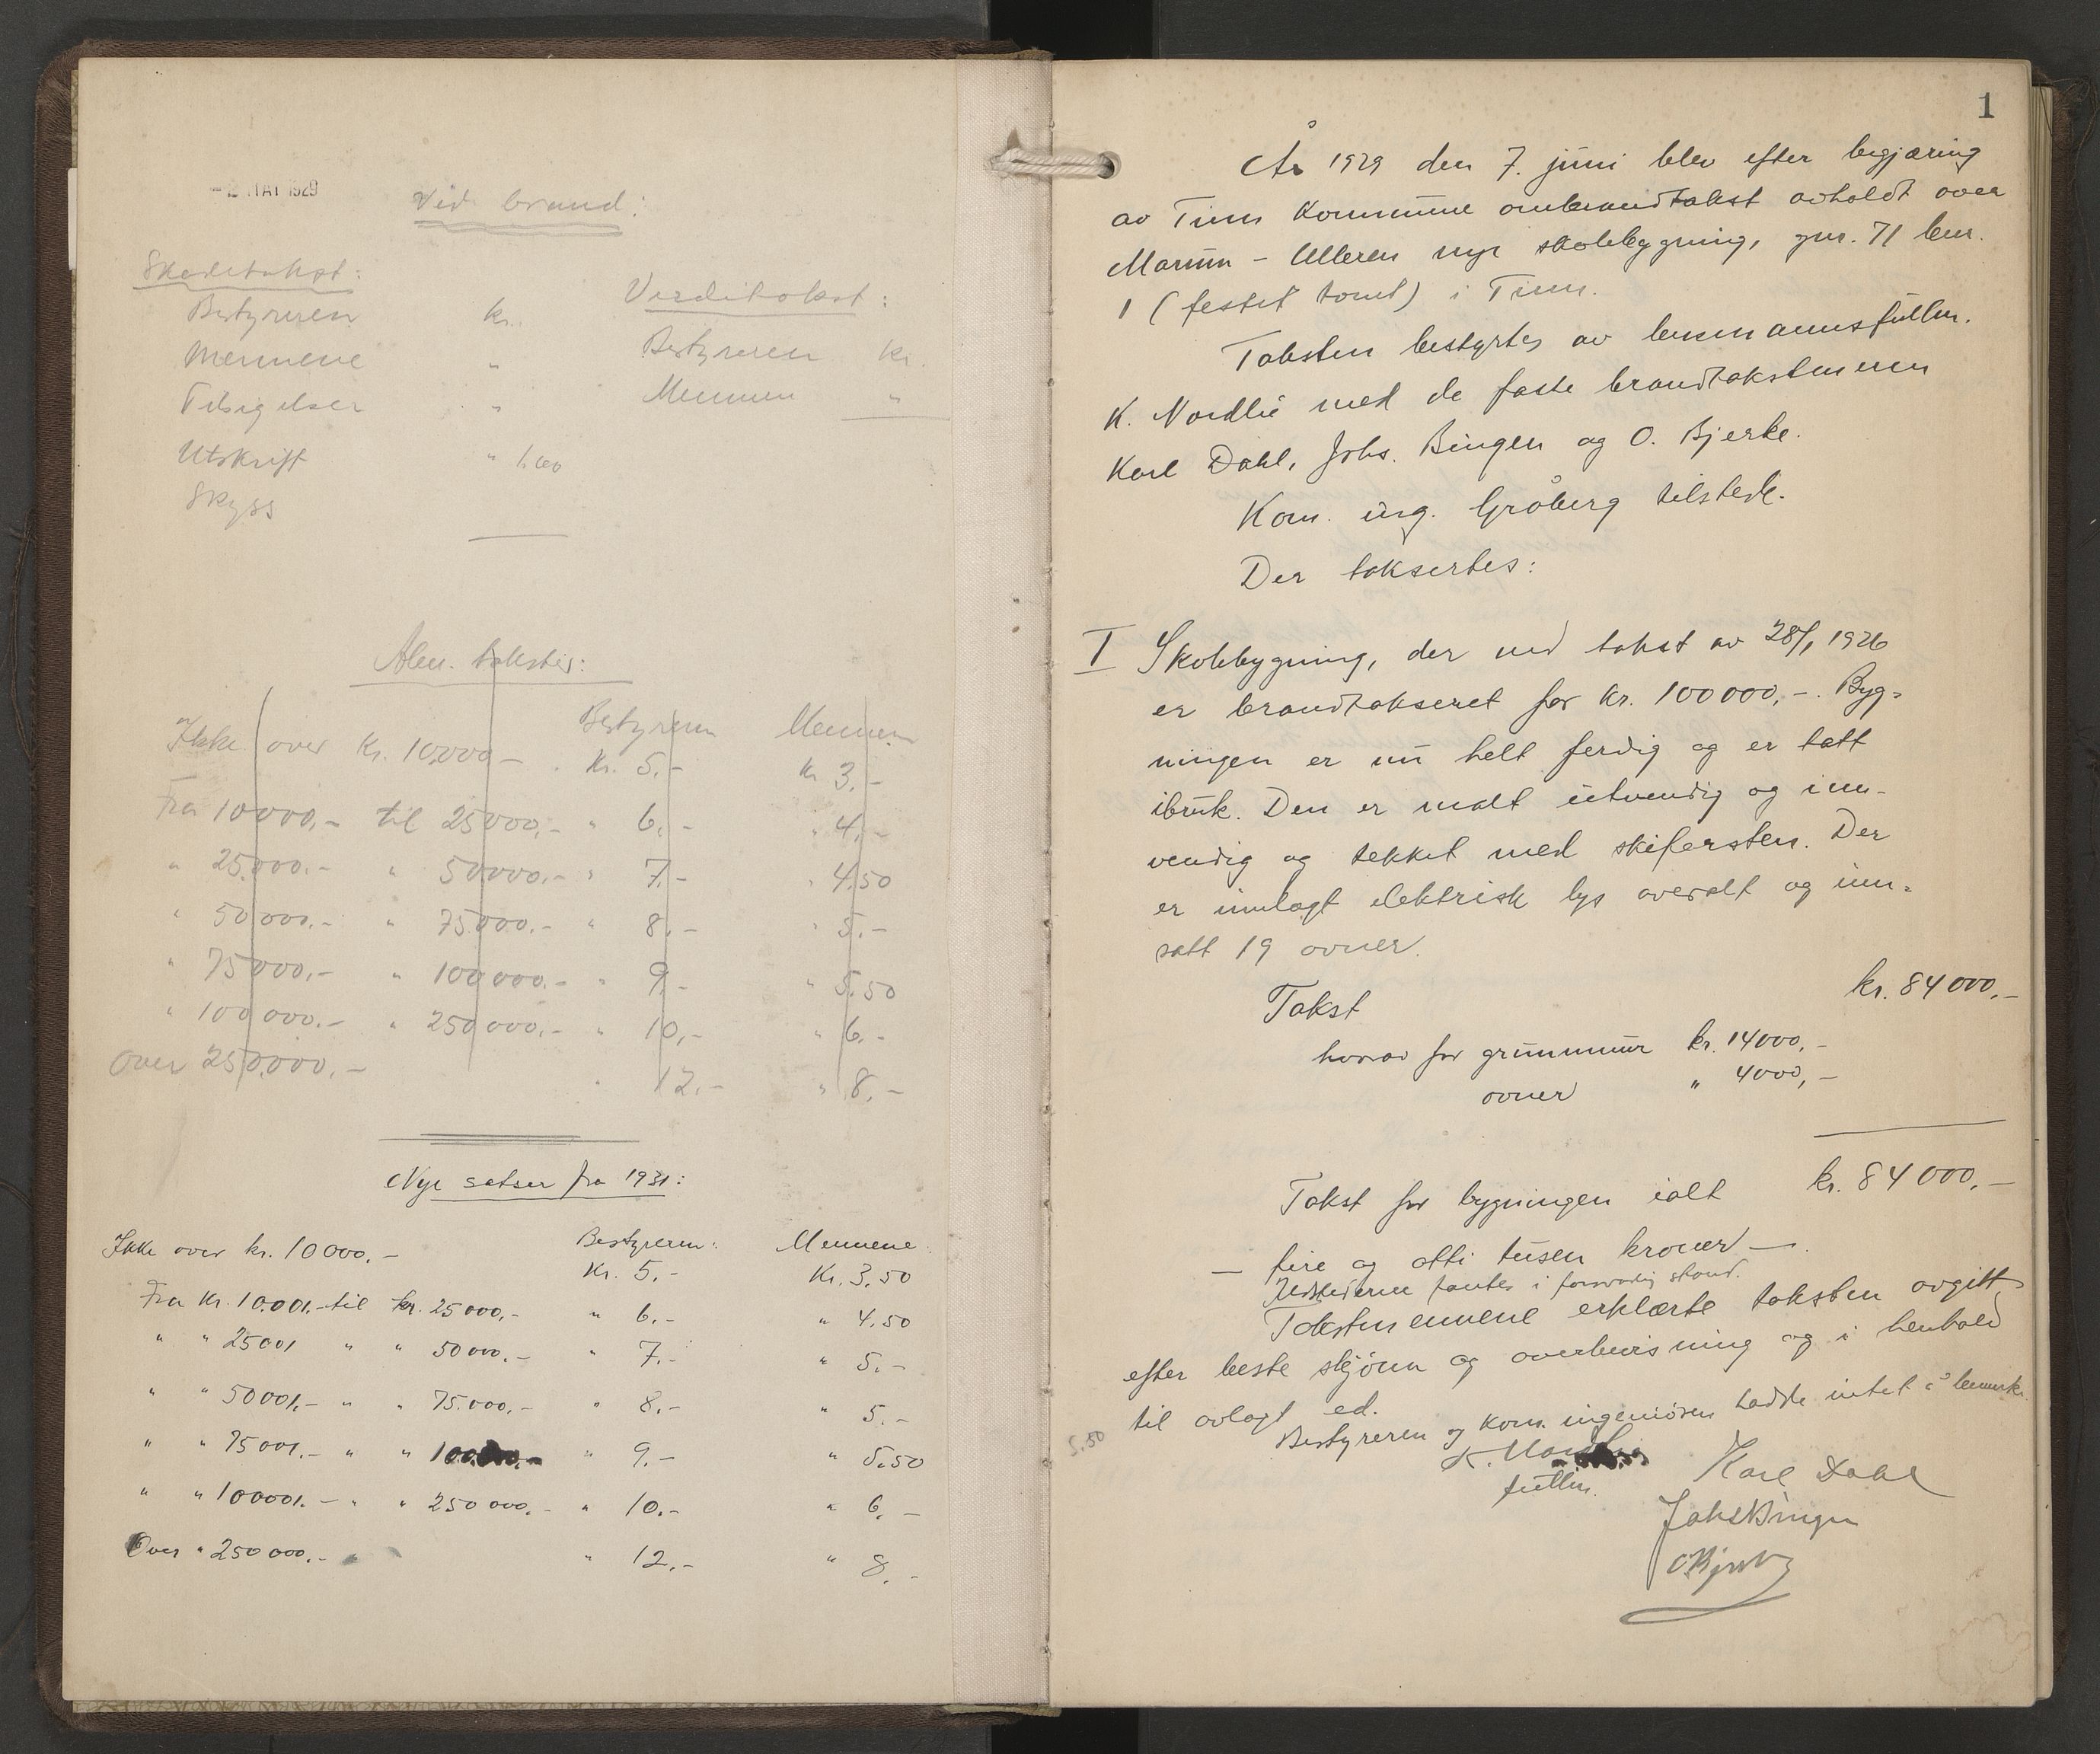 - 2 MAI 1929
Ved brand:
Skadetakst:
Bestyreren kr.
Mennene "
Tilsigelser "
Utskrift " 1.00
Skyss
Verditakst:
Bestyreren kr.
Mennene "
Alm. takster:
Bestyreren Mennene
Ikke over kr. 10000 - . kr. 5.- kr 3.-
Fra 10000,- til 25000,- " 6.- " 4.-
" 25.000.- " 50000.- " 7.- " 4.50
" 50000.- " 75000.- " 8.- " 5.-
" 75000.- " 100000.- " 9.- " 5.50
" 100000.- " 250000.- " 10.- " 6.-
Over 250.000.- " 12.- " 8.-
Nye satser fra 1931:
Bestyreren: Mennene:
Ikke over kr. 10000.- Kr. 5.- Kr. 3.50
Fra Kr. 10.001.- til kr. 25000.- " 6.- " 4.50
" " 25001 " " 50000.- " 7.- " 5.-
" " 50001.- " " 75.000.- " 8.- " 5.-
" " 75001.- " " 100.000.- " 9.- " 5.50
" " 100001.- " " 250000.- " 10.- " 6.-
Over " 250000.- " 12.- " 8.-
1
År 1929 den 7. juni blev efter begjæring
av Tinn kommune ombrandtakst avholdt over
Marum - Ulleren nye skolebygning, gnr. 71 bnr.
1 (festet tomt) i Tinn.
Taksten bestyrtes av lensmannsfullm.
K. Nordlie med de faste brandtakstmenn
Karl Dahl, Johs. Bingen og O. Bjerke.
Kom. ing. Gråberg tilstede.
Der taksertes:
I Skolebygning, der ved takst av 28/1 1926
er brandtakseret for kr. 100000,-. Byg-
ningen er nu helt ferdig og er tatt
ibruk. Den er malt utvendig og inn-
vendig og tekket med skifersten. Der
er innlagt elektrisk lys overalt og inn-
satt 19 ovner.
Takst kr. 84000,-
hvorav for grunnmur kr. 14000,-
ovner " 4000,-
Takst for bygningen ialt kr. 84000,-
- fire og otti tusen kroner -.
Ildstederne fantes i forsvarlig stand.
Takstmennene erklærte taksten avgitt
efter beste skjønn og overbevisning og i henhold
til avlagt ed.
Bestyreren og kom. ingeniøren hadde intet å bemerke.
5.50
K. Nordlie
fullm.
Karl Dahl
Johs Bingen
O Bjerke